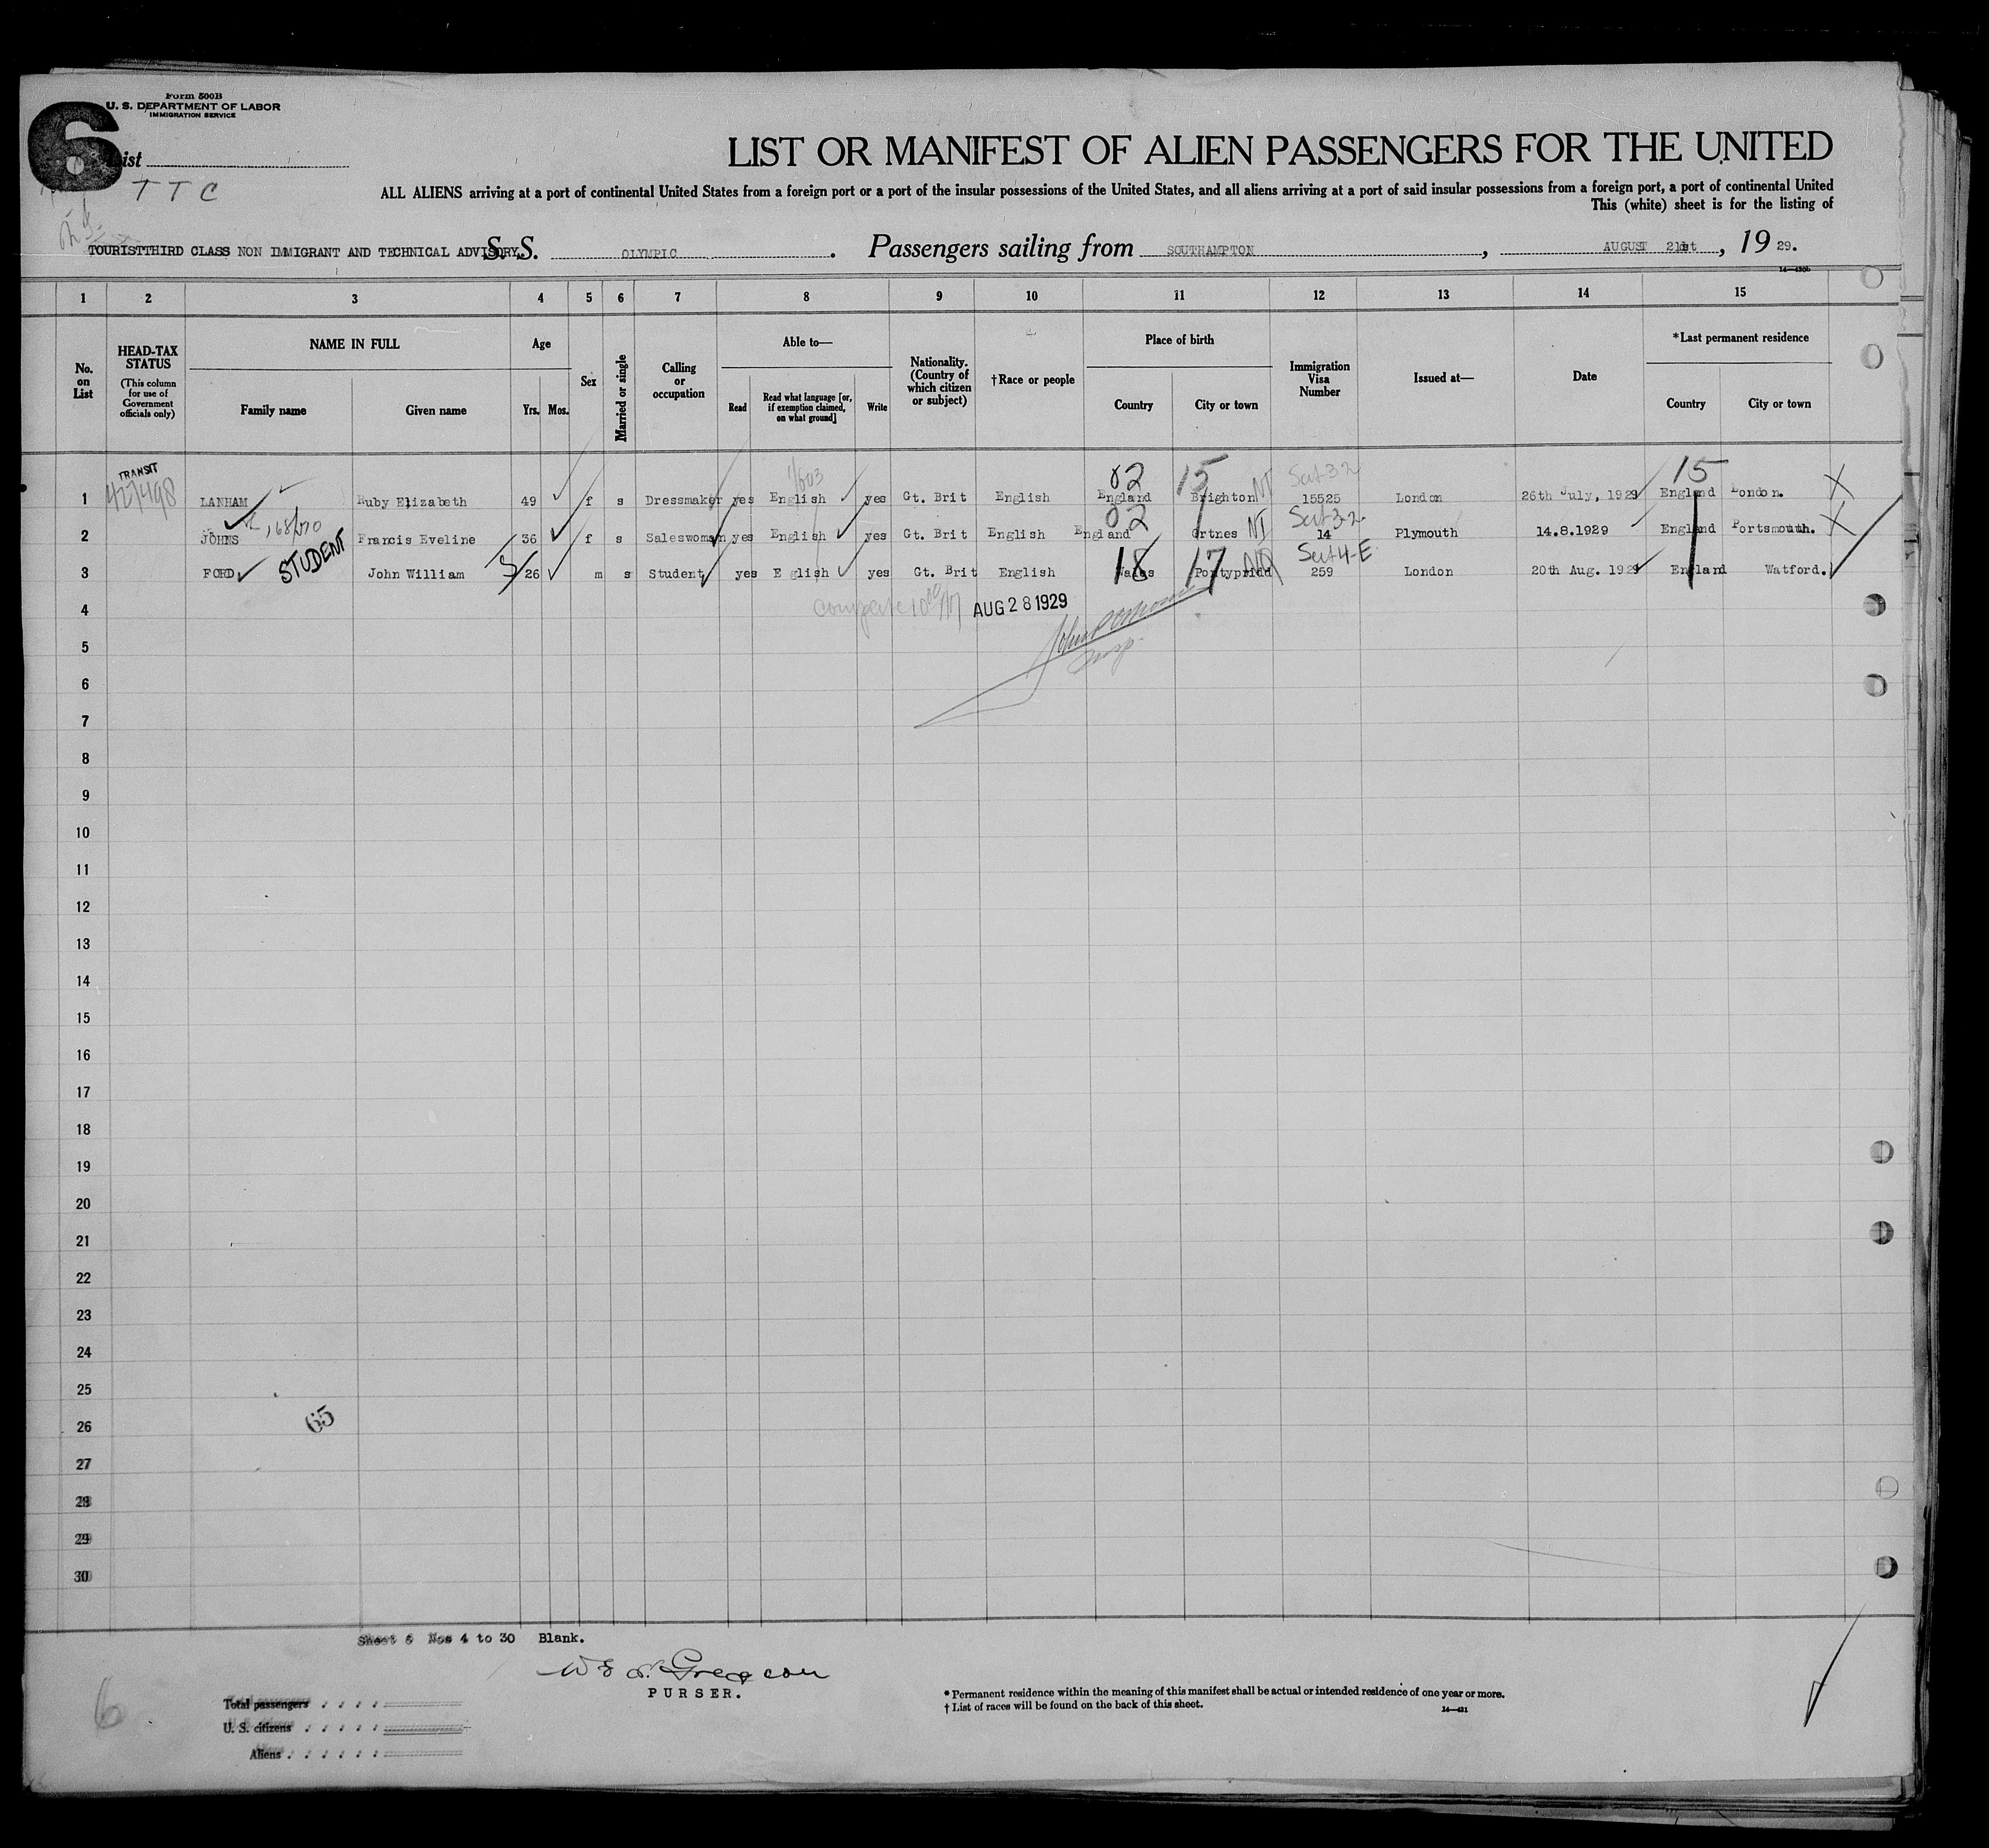 Form 500B
U. S. DEPARTMENT OF LABOR
IMMIGRATION SERVICE
6
List
T T C
LIST OR MANIFEST OF ALIEN PASSENGERS FOR THE UNITED
ALL ALIENS arriving at a port of continental United States from a foreign port or a port of the insular possessions of the United States, and all aliens arriving at a port of said insular possessions from a foreign port, a port of continental United
This (white) sheet is for the listing of
TOURISTTHIRD CLASS NON IMMIGRANT AND TECHNICAL ADVISORY. S. S. OLYMPIC. Passengers sailing from SOUTHAMPTON, AUGUST 21st, 1929.
14—430b
1 2 3 4 5 6 7 8 9 10 11 12 13 14 15
No. on List
HEAD-TAX STATUS (This column for use of Government officials only)
NAME IN FULL
Family name Given name
Age
Yrs. Mos.
Sex
Married or single
Calling or occupation
Able to—
Read Read what language [or, if exemption claimed, on what ground] Write
Nationality. (Country of which citizen or subject)
†Race or people
Place of birth
Country City or town
Immigration Visa Number
Issued at—
Date
*Last permanent residence
Country City or town
TRANSIT 02 15 Sect 3-2 15
1 427498 LANHAM Ruby Elizabeth 49 f s Dressmaker yes English yes Gt. Brit English England Brighton 15525 London 26th July, 1929 England London.
02 Sect 3-2
2 JOHNS Francis Eveline 36 f s Saleswoman yes English yes Gt. Brit English England Ortnes 14 Plymouth 14.8.1929 England Portsmouth.
STUDENT 18 17 Sect 4-E
3 FORD John William 26 m s Student yes E glish yes Gt. Brit English Wales Pontypridd 259 London 20th Aug. 1929 England Watford.
4 complete AUG 28 1929
5
6
7
8
9
10
11
12
13
14
15
16
17
18
19
20
21
22
23
24
25
26 65
27
28
29
30
Sheet 6 Nos 4 to 30 Blank.
PURSER.
6
Total passengers
U. S. citizens
Aliens
* Permanent residence within the meaning of this manifest shall be actual or intended residence of one year or more.
† List of races will be found on the back of this sheet.
14—431